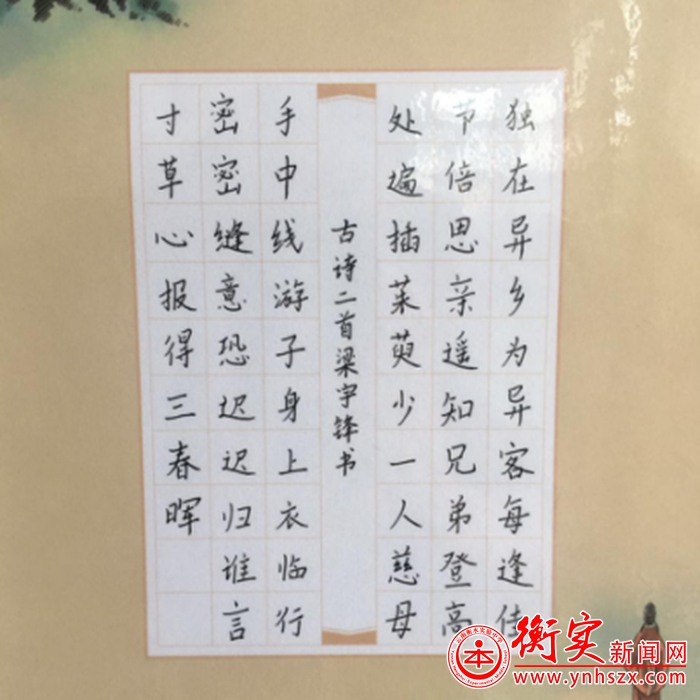 独在异乡为异客每逢佳
节倍思亲遥知兄弟登高
处遍插茱萸少一人慈母
古诗二首梁宇锋书
手中线游子身上衣临行
密密缝意恐迟迟归谁言
寸草心报得三春晖
衡实新闻网
www.ynhszx.com